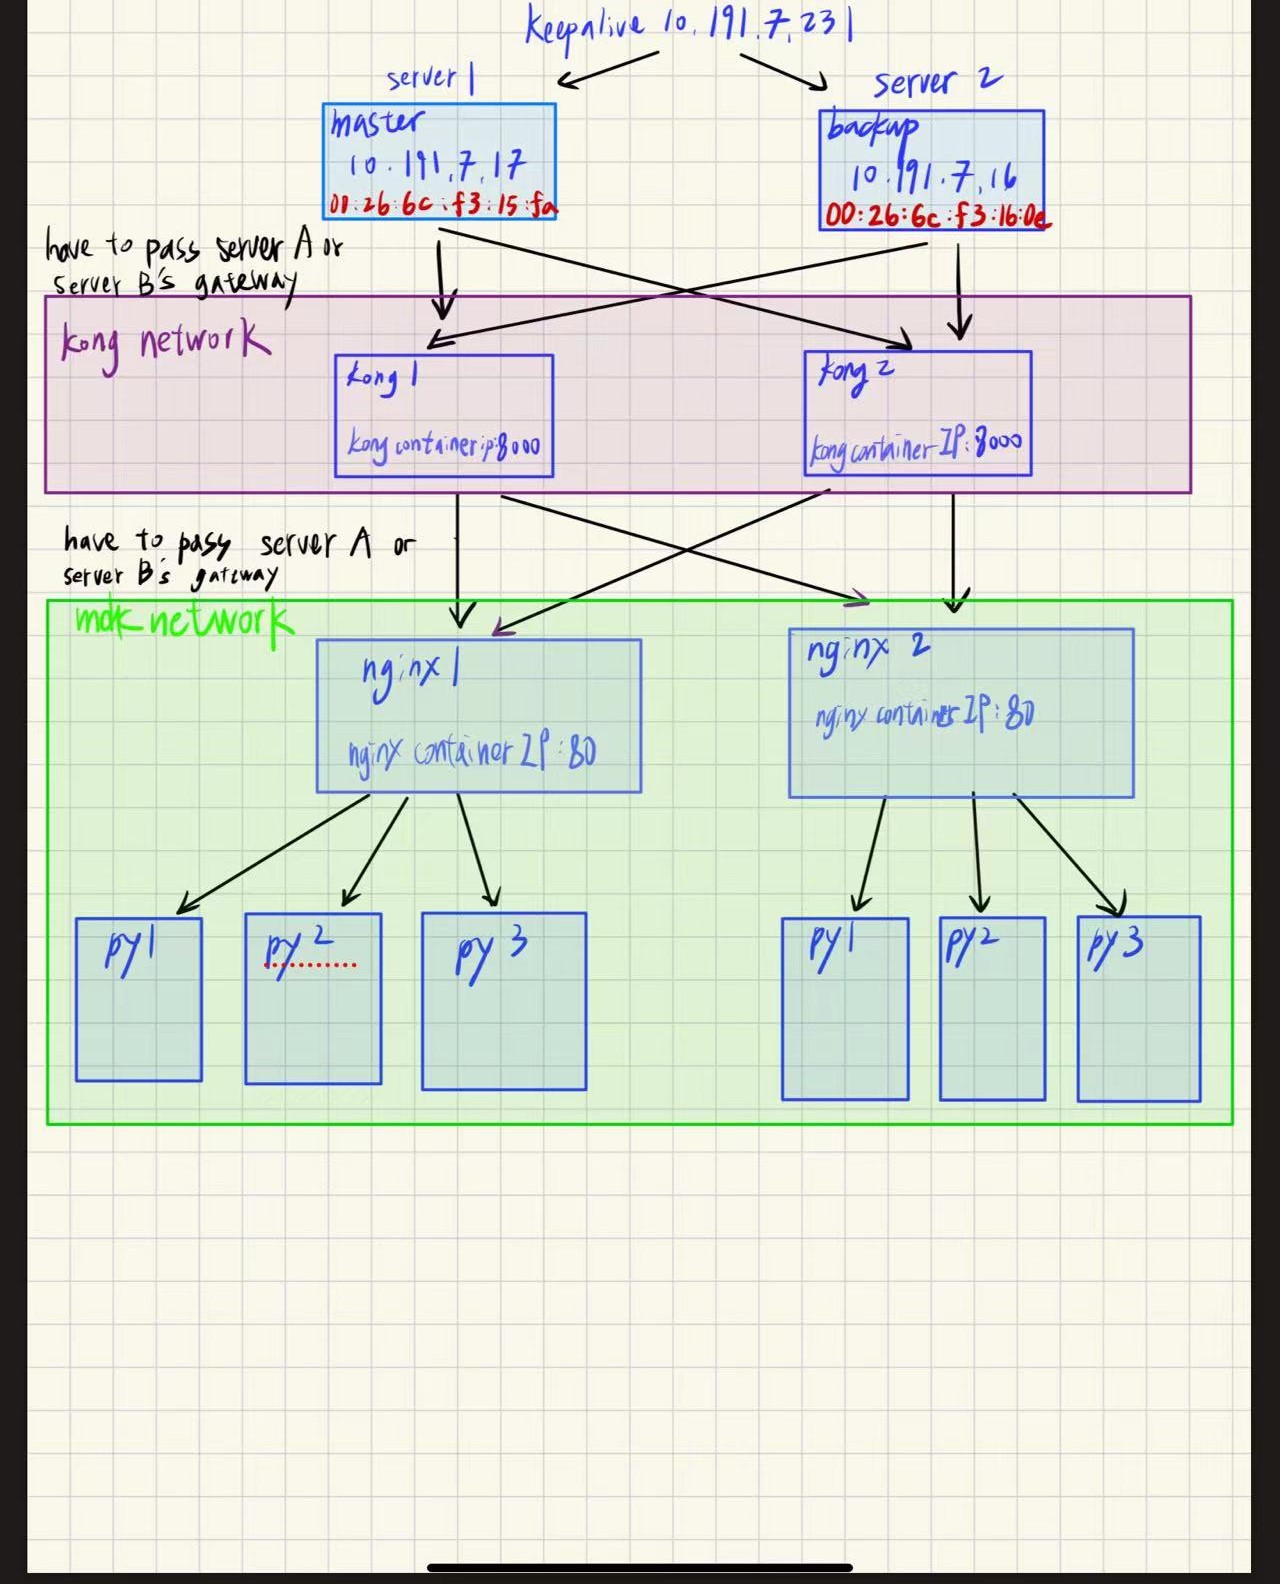 Keepalive 10.191.7.231
server 1
server 2
master
10.191.7.17
00:26:6c:f3:15:fa
backup
10.191.7.16
00:26:6c:f3:16:0e
have to pass server A or
server B's gateway
kong network
kong 1
kong container ip:8000
kong 2
kong container IP:8000
have to pass server A or
server B's gateway
network
nginx 1
nginx container IP:80
nginx 2
nginx container IP:80
py1
py2
py3
py1
py2
py3